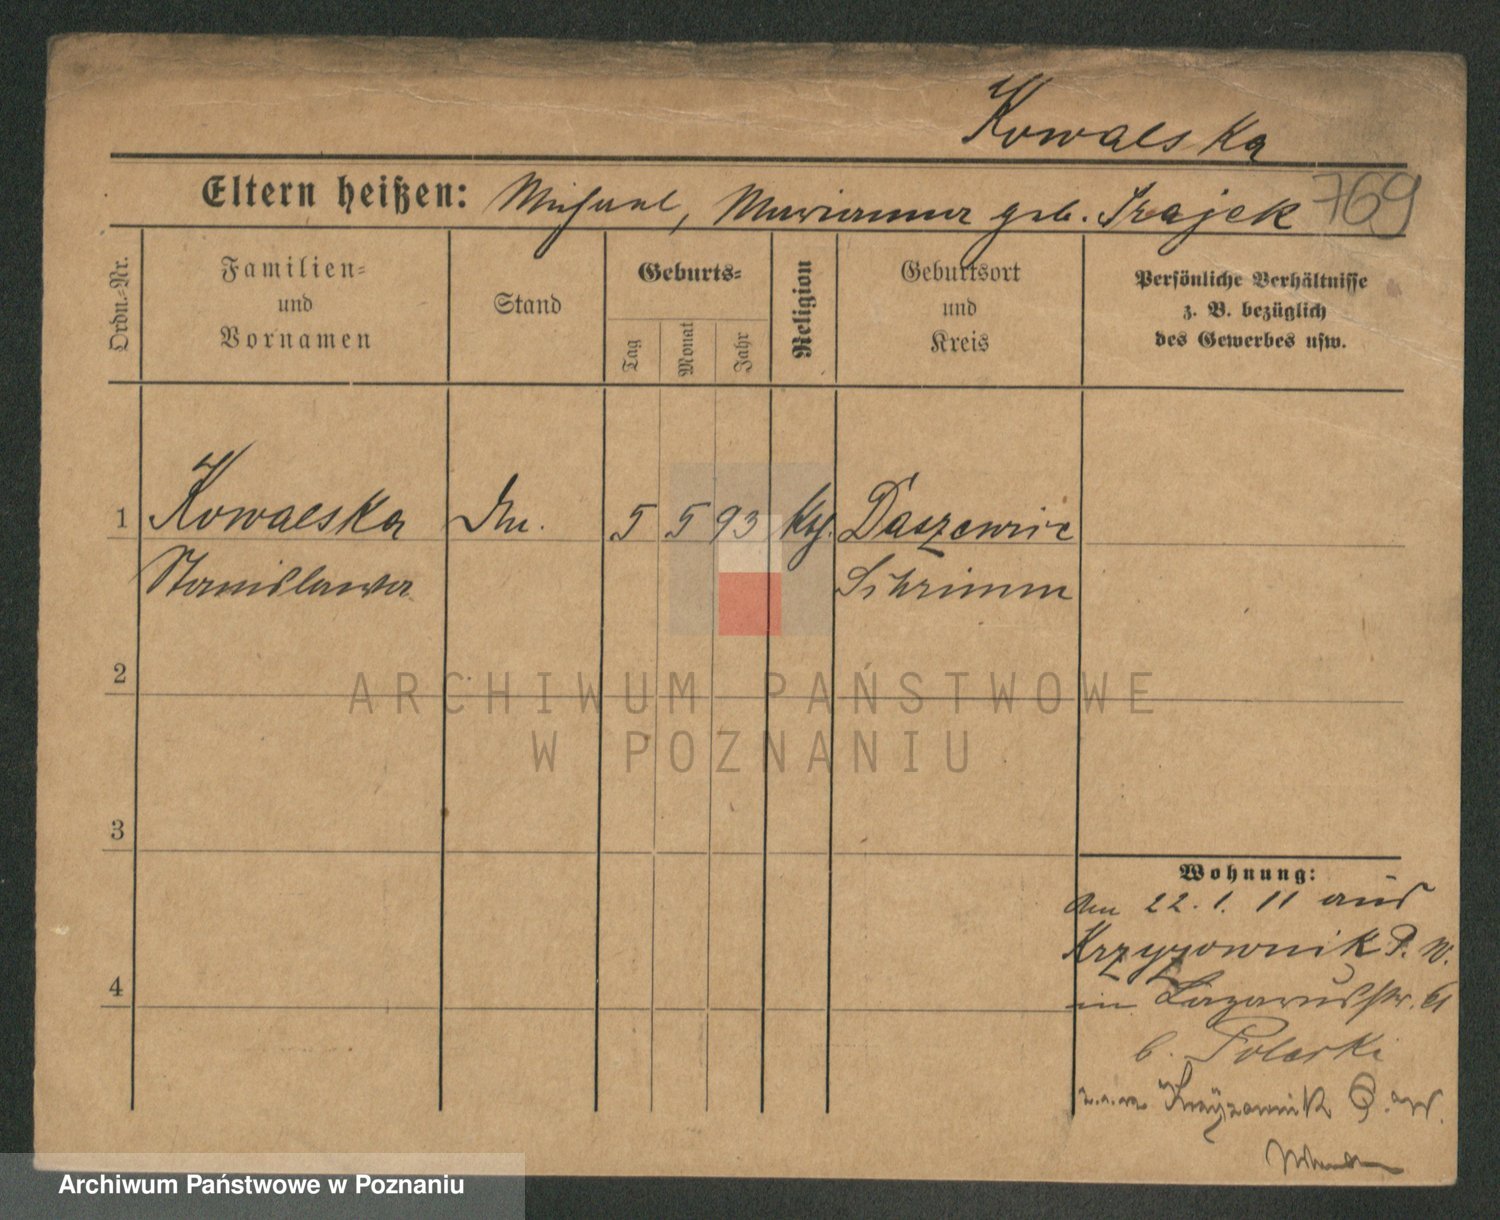 Kowalska
Eltern heißen: Michael, Marianna geb. Szajek 769
Ordn.-Nr.
Familien-
und
Vornamen
Stand
Geburts-
Tag
Monat
Jahr
Religion
Geburtsort
und
Kreis
Persönliche Verhältnisse
z. B. bezüglich
des Gewerbes usw.
1 Kowalska 5 5 93 Daszewice
Stanislawa Schrimm
2
ARCHIWUM PAŃSTWOWE
W POZNANIU
3
Wohnung:
22. 1. 11 aus
Krzyzownik P. W.
4
in Lazarusstr.
b. Polaski
Krzyzownik
Archiwum Państwowe w Poznaniu